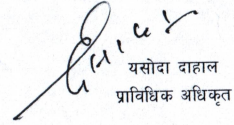 यसोदा दाहाल
प्राविधिक अधिकृत